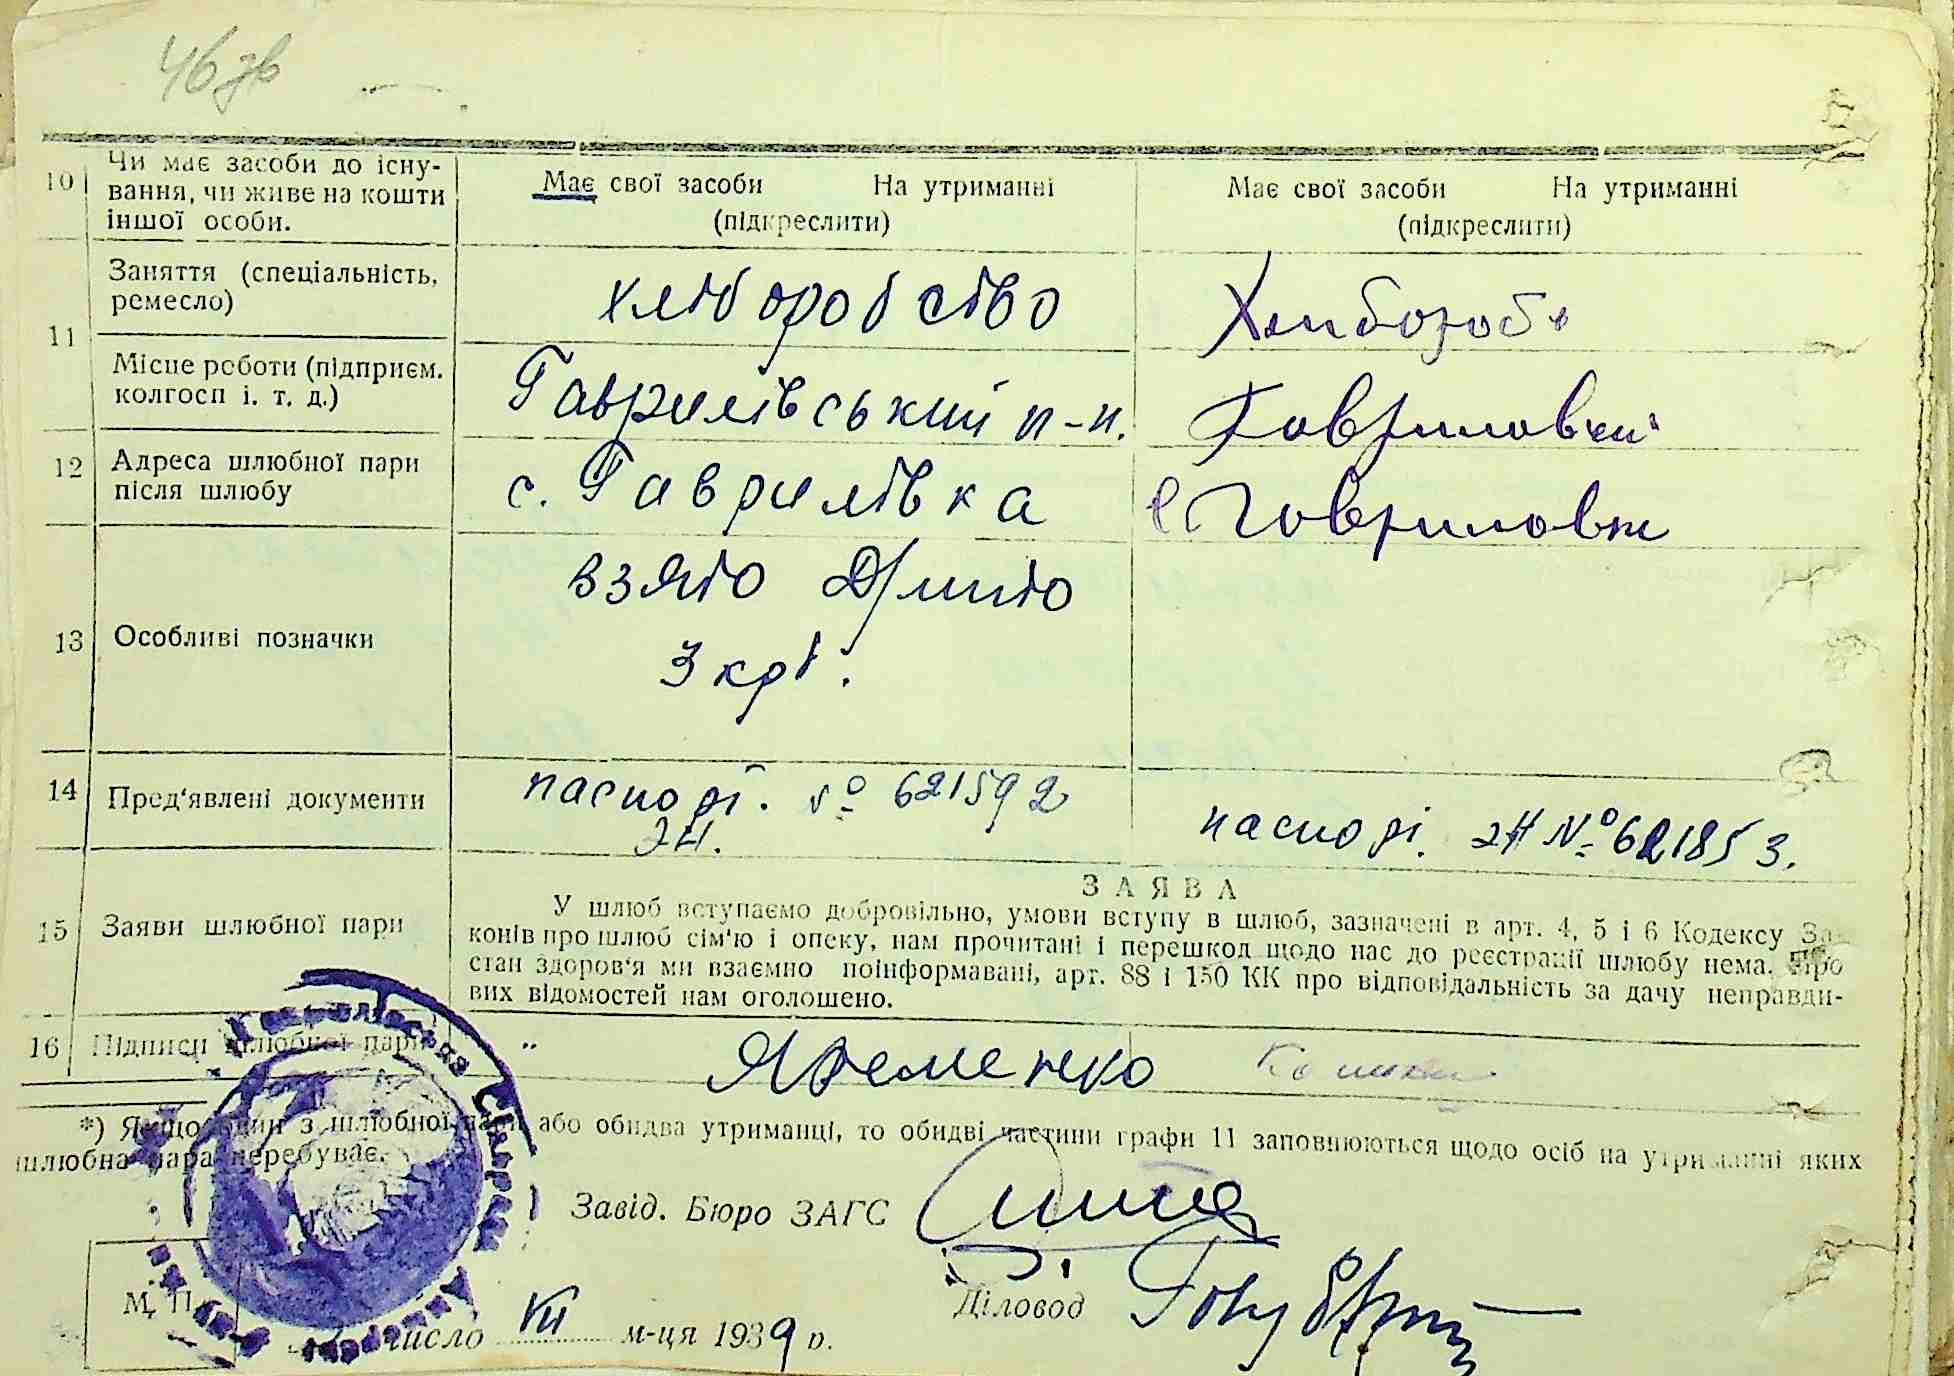 46 зв
10 Чи має засоби до існу-
вання, чи живе на кошти
іншої особи.
Має свої засоби На утриманні
(підкреслити)
Має свої засоби На утриманні
(підкреслити)
11 Заняття (спеціальність,
ремесло)
хліборобство
Місце роботи (підприєм.
колгосп і. т. д.)
Гаврилівський
12 Адреса шлюбної пари
після шлюбу
с. Гаврилівка
13 Особливі позначки
взято
3 крб.
14 Пред'явлені документи
паспорт. № 621592
ЭН.
паспорт. ЭН № 621853.
15 Заяви шлюбної пари
ЗАЯВА
У шлюб вступаємо добровільно, умови вступу в шлюб, зазначені в арт. 4, 5 і 6 Кодексу За-
конів про шлюб сім'ю і опеку, нам прочитані і перешкод щодо нас до реєстрації шлюбу нема. Про
стан здоров'я ми взаємно поінформавані, арт. 88 і 150 КК про відповідальність за дачу неправди-
вих відомостей нам оголошено.
16 Підписи шлюбної пари
Яременко
*) Якщо один з шлюбної пари або обидва утриманці, то обидві частини графи 11 заповнюються щодо осіб на утриманні яких
шлюбна пара перебуває.
Завід. Бюро ЗАГС
Діловод
М. П.
число VII м-ця 1939 р.